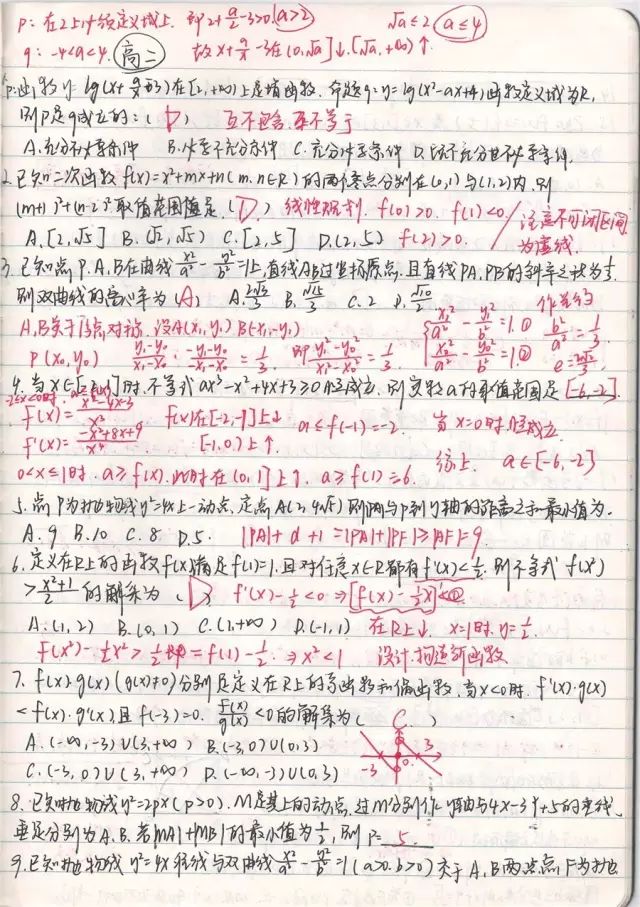 p: 在2上必须定义域上. 即2+a/2-3>0 (a>2) √a≤2 (a≤4)
q: -4<a<4. (高二) 故x+a/x-3在(0,√a]↓.[√a,+∞)↑
p:函数y=lg(x+a/x-3)在[2,+∞)上是增函数. 命题q:y=lg(x²-ax+4)函数定义域为R,
则p是q成立的:( D ) 互不包含.更不等于
A.充分不必要条件 B.必要不充分条件 C.充分必要条件 D.既不充分也不必要条件.
2.已知二次函数f(x)=x²+mx+n(m.n∈R)的两个零点分别在(0,1)与(1,2)内.则
(m+1)²+(n-2)²取值范围是( D ) 线性规划. f(0)>0. f(1)<0. 注意不可闭区间
A.[2,√5] B.(√2,√5) C.[2,5] D.(2,5) f(2)>0. 为虚线.
3.已知点P.A.B在曲线x²/a²-y²/b²=1上,直线AB过坐标原点.且直线PA.PB的斜率之积为1/3.
则双曲线的离心率为(A) A.2√3/3 B.√15/3 C.2 D.√10/2 作差得
A,B关于原点对称.设A(x₁,y₁) B(-x₁-y₁) x₁²/a²-y₁²/b²=1.① b²/a²=1/3.
P(x₀,y₀) y₁-y₀/x₁-x₀·-y₁-y₀/-x₁-x₀=1/3. 即y₁²-y₀²/x₁²-x₀²=1/3. x₀²/a²-y₀²/b²=1② e=2√3/3
4.当x∈[-2,1]时.不等式ax³-x²+4x+3≥0恒成立.则实数a的取值范围是[-6,-2].
-2≤x<0时.
f(x)=x²-4x-3/x³ f(x)在[-2,-1]上↓ a≤f(-1)=-2. 当x=0时.恒成立.
f'(x)=-x²+8x+9/x⁴ [-1,0)上↑.
0<x≤1时.a≥f(x).此时在(0,1]上↑.a≥f(1)=-6. 综上. a∈[-6,-2]
5.点P为抛物线y²=4x上一动点,定点A(2,4√5)则PA与P到y轴的距离之和最小值为.
A.9 B.10 C.8 D.5. |PA|+d+1=|PA|+|PF|≥|AF|=9.
6.定义在R上的函数f(x)满足f(1)=1.且对任意x∈R都有f'(x)<1/2.则不等式f(x²)
>x²+1/2的解集为( D ) f'(x)-1/2<0⇒[f(x)-1/2x]'<0
A.(1,2) B.(0,1) C.(1,+∞) D.(-1,1) 在R上↓ x=1时.y=1/2.
f(x²)-1/2x²>1/2=f(1)-1/2.⇒x²<1 设计.构造新函数
7.f(x).g(x)(g(x)≠0)分别是定义在R上的奇函数和偶函数.当x<0时. f'(x)·g(x)
<f(x)·g'(x).且f(-3)=0. f(x)/g(x)<0的解集为( C. )
A.(-∞,-3)∪(3,+∞) B.(-3,0)∪(0,3) -3 0 3
C.(-3,0)∪(3,+∞) D.(-∞,-3)∪(0,3)
8.已知抛物线y²=2px(p>0).M是其上的动点.过M分别作y轴与4x-3y+5的垂线.
垂足分别为A.B.若|MA|+|MB|的最小值为1/2,则P= 5.
9.已知抛物线y²=4x准线与双曲线x²/a²-y²/b²=1(a>0.b>0)交于A,B两点点F为抛